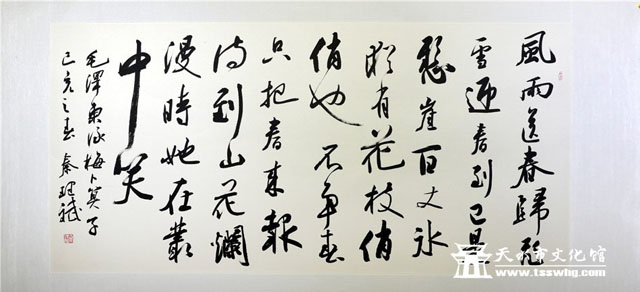 風雨送春歸飛
雪迎春到已是
懸崖百丈冰
猶有花枝俏
俏也不争春
只把春来報
待到山花爛
漫時她在叢
中笑
毛澤東詠梅卜算子
己亥之春 秦理斌
天水市文化馆
www.tsswhg.com